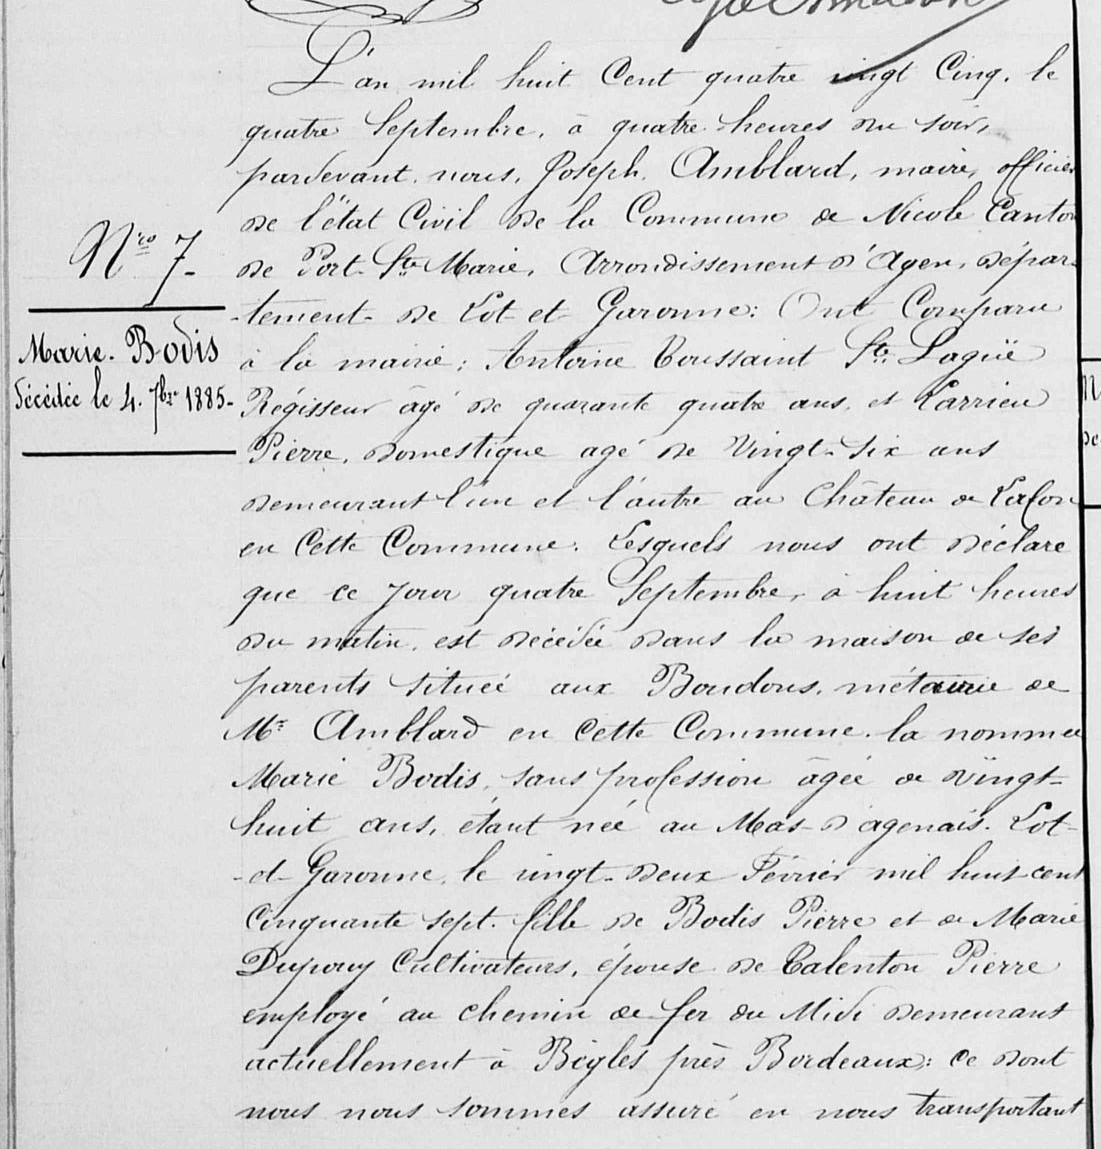 L'an mil huit Cent quatre vingt Cinq, le
quatre Septembre, à quatre heures du soir,
pardevant, nous, Joseph, Amblard, maire, officier
de l'état Civil de la Commune de Nicole Canton
de Port-Ste Marie, Arrondissement d'Agen, dépar-
-tement de Lot et Garonne: Ont Comparu
à la mairie; Antoine Toussaint Ste Lagüe
Régisseur âgé de quarante quatre ans, et Larrieu
Pierre, domestique agé de Vingt-six ans
demeurant l'un et l'autre au Château de Lafon
en Cette Commune. Lesquels nous ont déclaré
que ce jour quatre Septembre, à huit heures
du matin, est décédée dans la maison de ses
parents située aux Boudous, métairie de
Mr Amblard en Cette Commune. la nommée
Marie Bodis, sans profession âgée de vingt-
huit ans, étant née au Mas-d'agenais. Lot-
-et-Garonne, le vingt-deux Février mil huit cent
Cinquante sept. fille de Bodis Pierre et de Marie
Dupouy Cultivateurs, épouse de Talenton Pierre
employé au chemin de fer du Midi demeurant
actuellement à Bègles près Bordeaux: ce dont
nous nous sommes assuré en nous transportant
Nro 7-
Marie. Bodis
Décédée le 4. 7bre 1885-